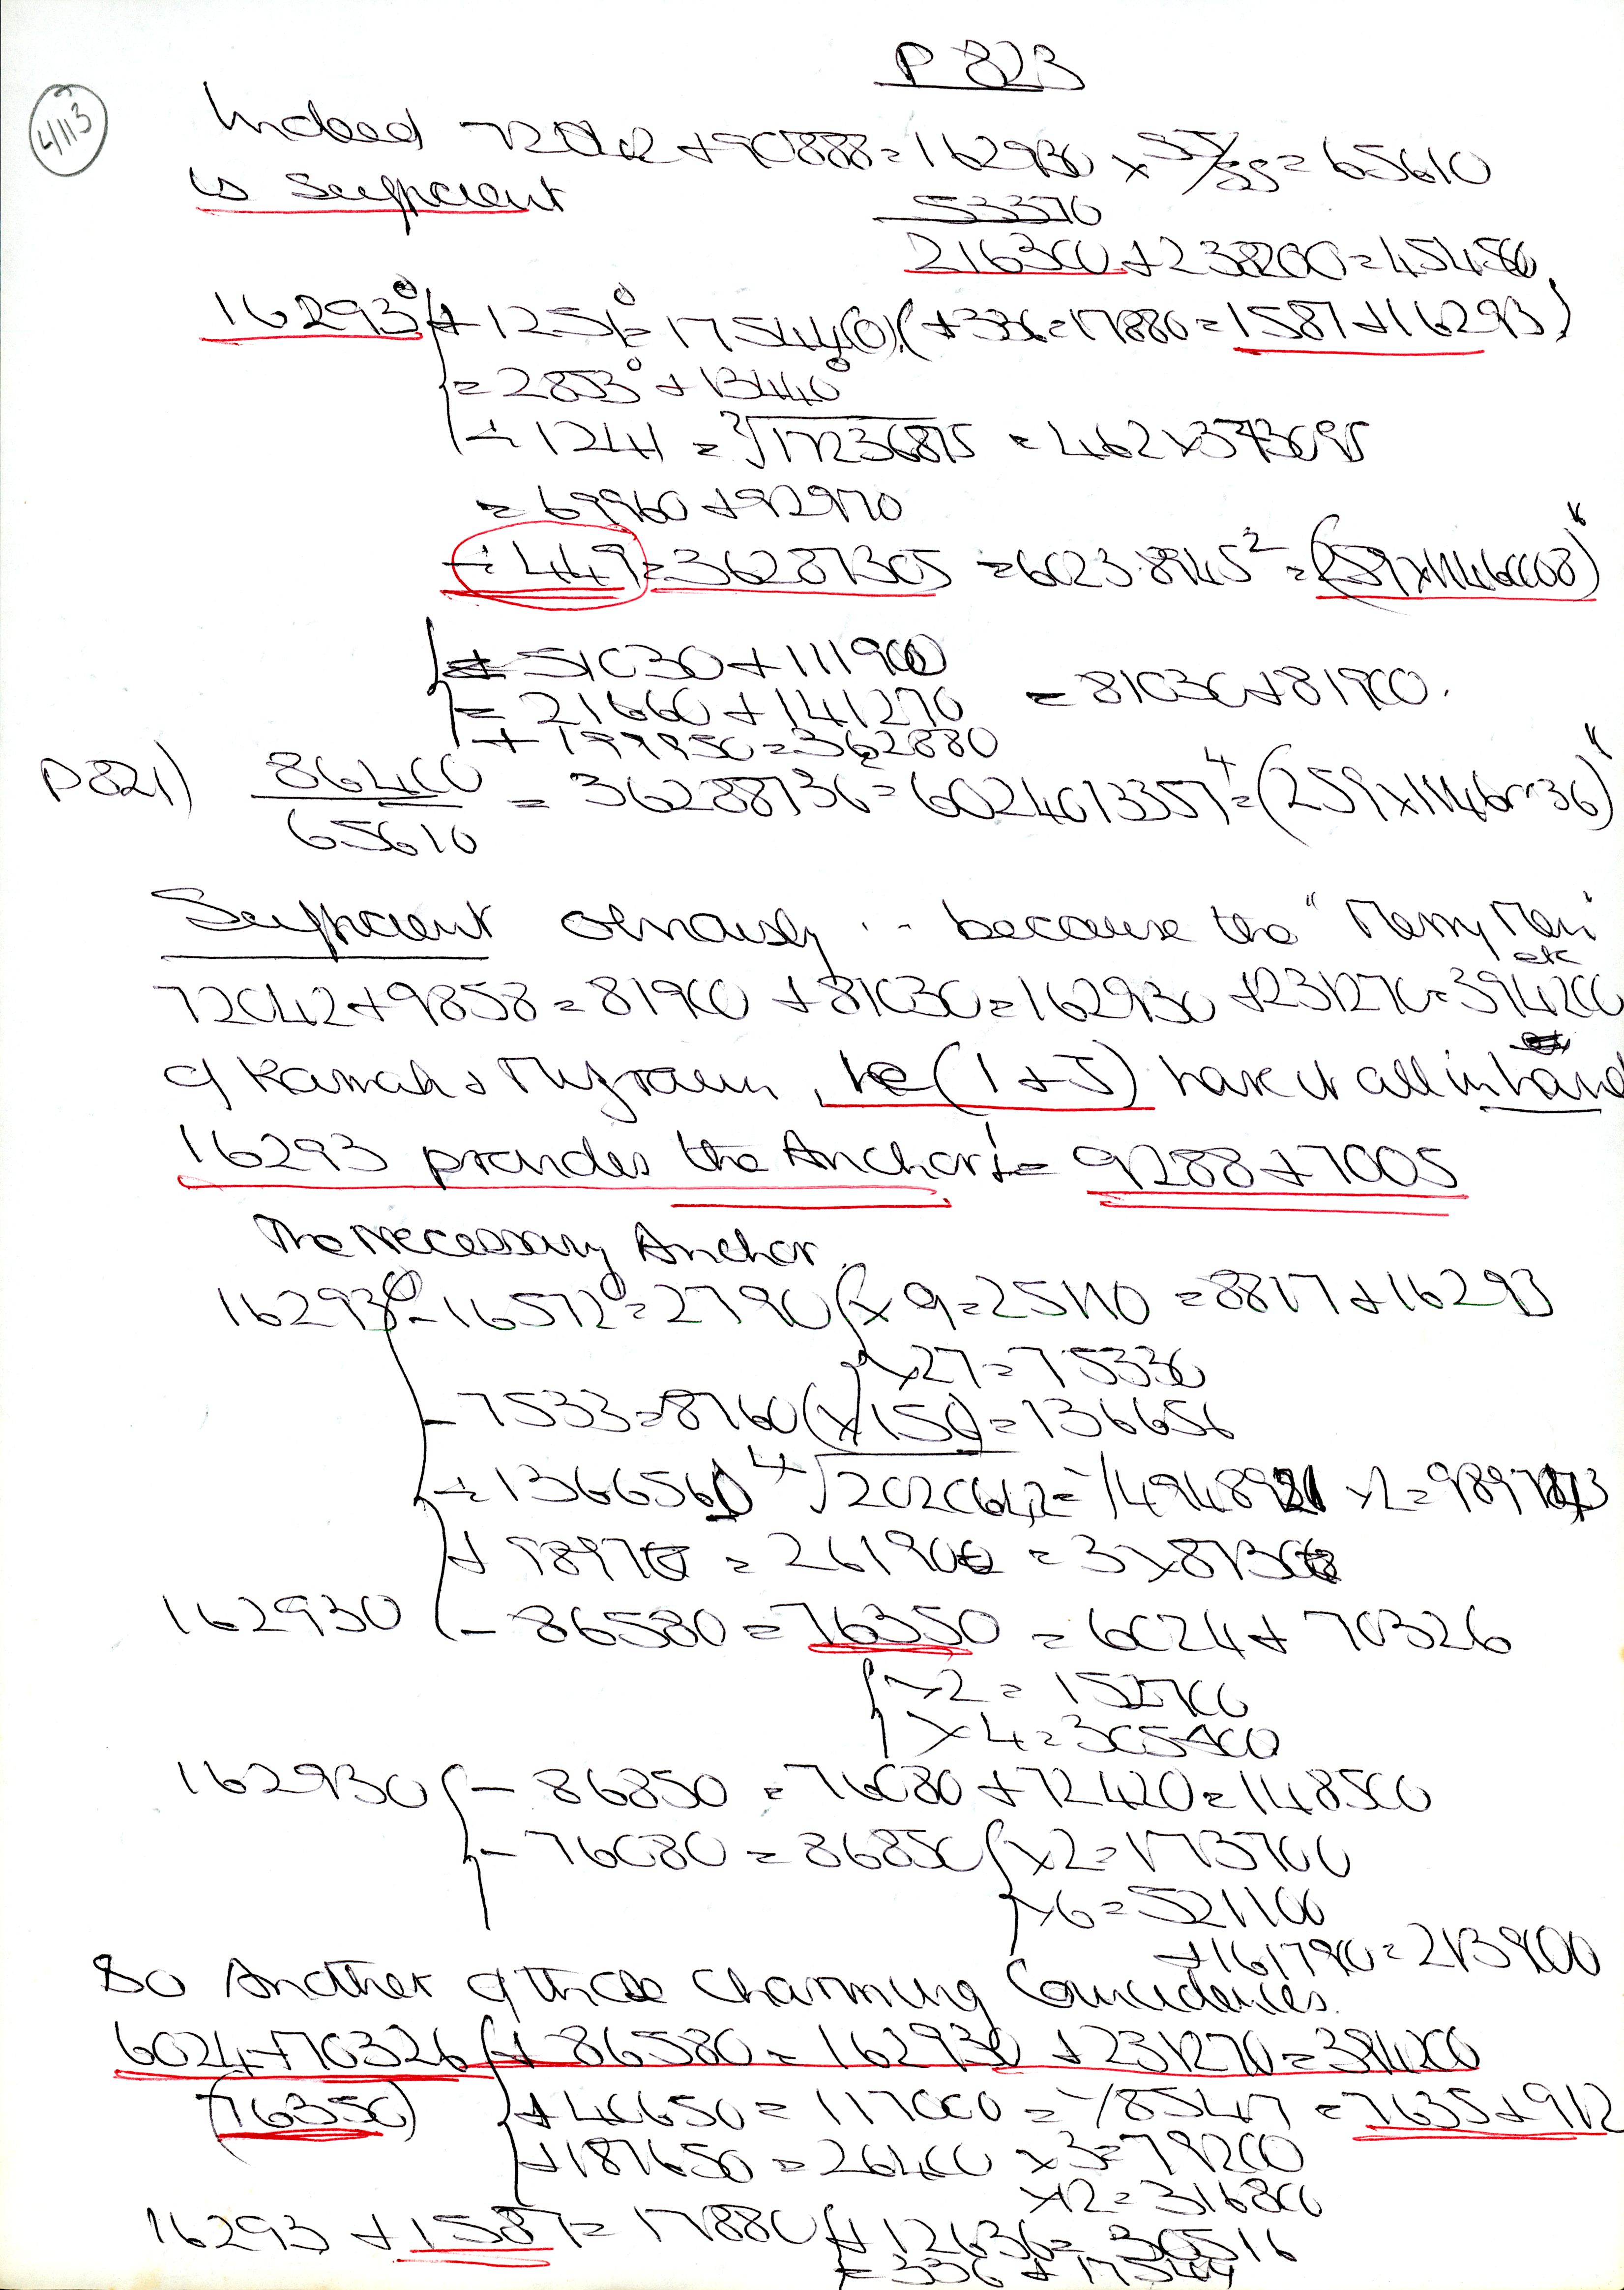 P 823
4113
Indeed 72042 + 90888 = 162930 × 55/55 = 65610
is Sufficient
53370
216300 + 238200 = 454500
16293° + 1251° = 17544(0) (+ 336 = 17880 = 1587 + 16293)
= 2853° + 13440°
÷ 1241 = ³√17236875 = 462 × 373095
= 69960 + 92970
÷ 449 = 36287305 = 6023.8945² = (259 × 1146008)"
= 51030 + 111900
= 21660 + 141270 = 81030 + 81900.
+ 199950 = 362880
P 821) 86400 / 65610 = 36288736² = 6024013357⁴ = (259 × 1146..36)"
Sufficient obviously .. because the "Merry Men"
etc
72042 + 9858 = 81900 + 81030 = 162930 + 231270 = 394200
of Karnak & Mizraim, he (1 + 5) have it all in hand
16293 provides the Anchor! = 9288 + 7005
The Necessary Anchor.
16293° - 16572° = 2790 (× 9 = 25110 = 8817 + 16293
× 27 = 75330
- 7533 = 8760 (× 156) = 136656
÷ 1366560 ⁴√2020642 = -/4948921 × 2 = 9897843
+ 98970 = 261900 = 3 × 87300
162930 - 86580 = 76350 = 6024 + 70326
× 2 = 152700
× 4 = 305400
162930 - 86850 = 76080 + 72420 = 148500
- 76080 = 86850 × 2 = 173700
× 6 = 521100
+ 161790 = 213900
So Another of those Charming Coincidences.
6024 + 70326 + 86580 = 162930 + 231270 = 394200
(76350) + 40650 = 117000 = -/8547 = 7635 + 912
+ 187650 = 26400 × 3 = 79200
× 12 = 316800
16293 + 1587 = 17880 + 12636 = 30516
= 336 + 17544